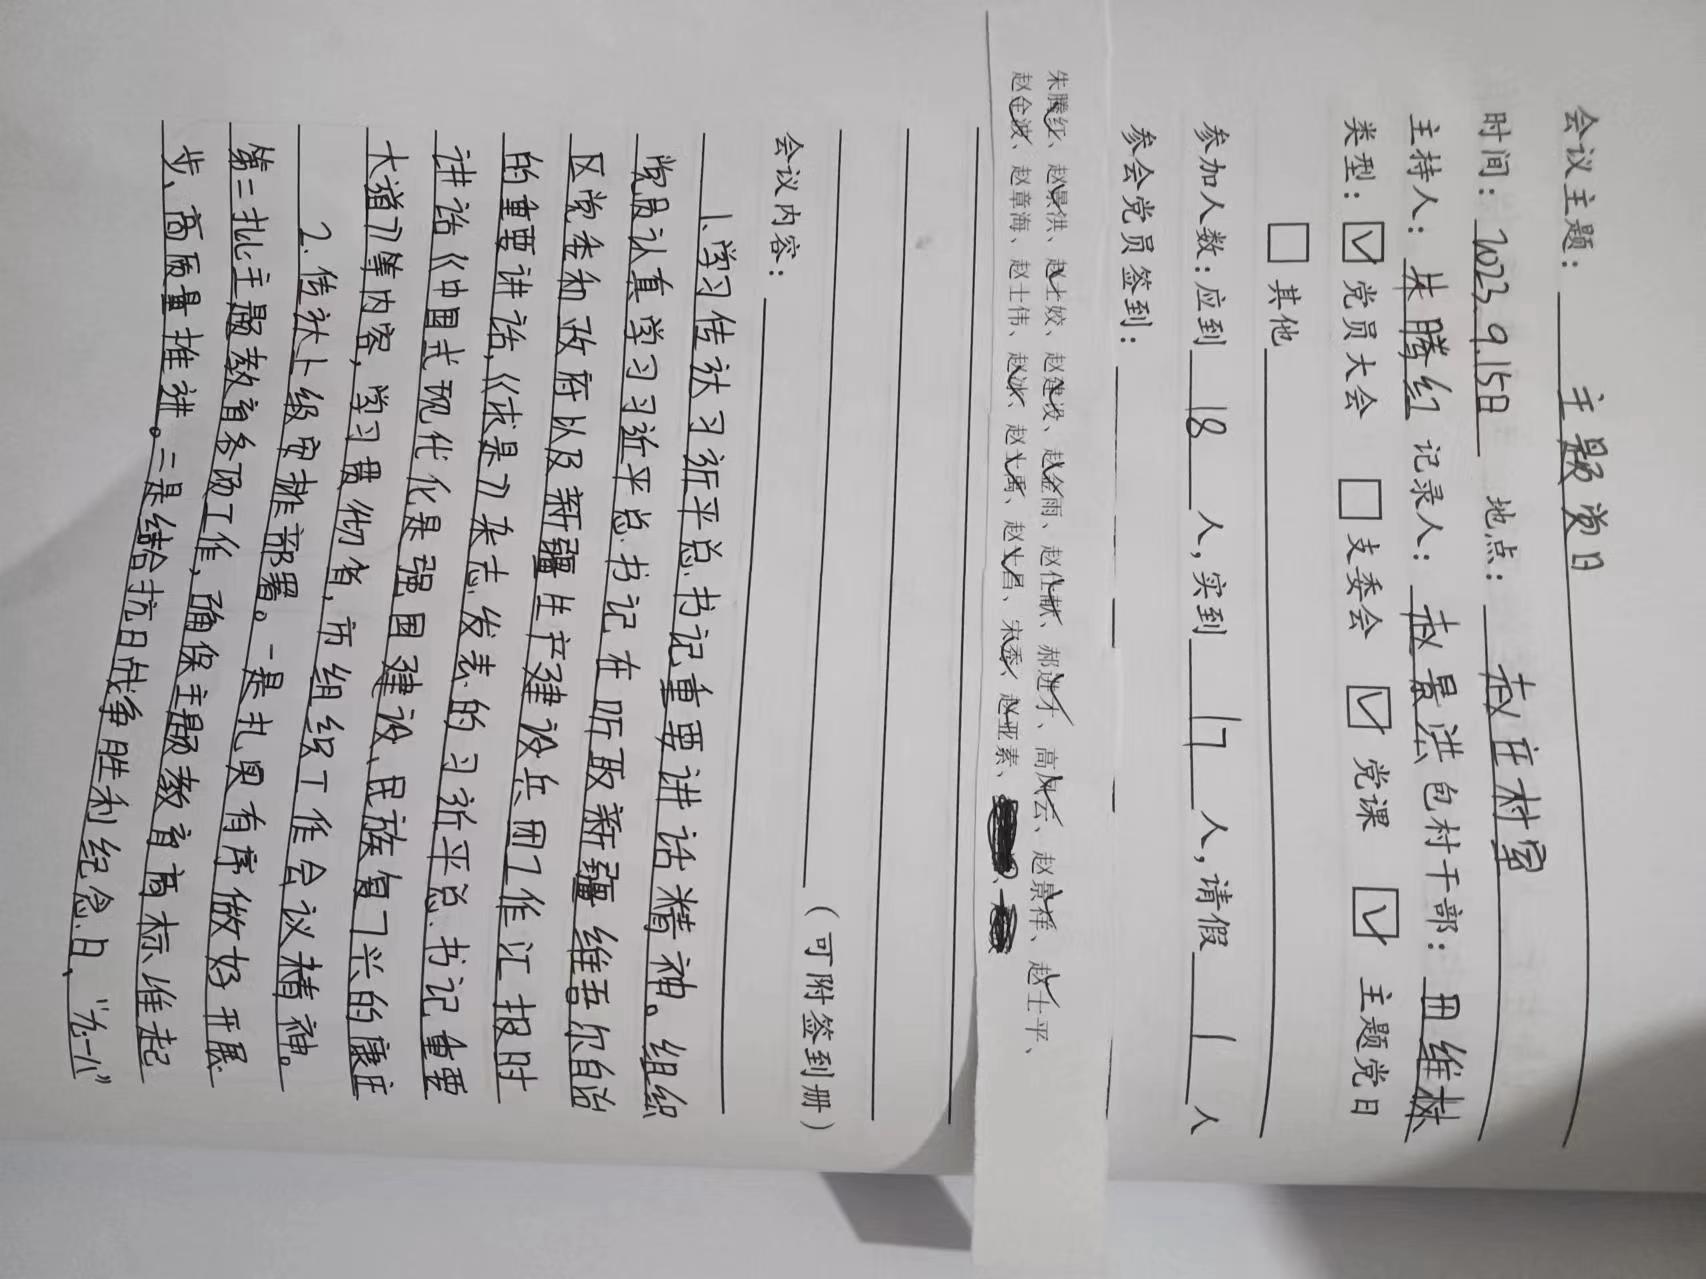 会议主题：主题党日
时间：2023.9.15日 地点：赵庄村室
主持人：朱腾红 记录人：赵景洪 包村干部：田维林
类型：☑党员大会 □支委会 ☑党课 ☑主题党日
□其他
参加人数：应到18人，实到17人，请假1人
参会党员签到：
朱腾红、赵景洪、赵士姣、赵建设、赵金雨、赵仕献、郝进才、高凤云、赵景祥、赵士平、
赵全波、赵章海、赵士伟、赵冰、赵士禹、赵士昌、宋秀、赵亚素、
（可附签到册）
会议内容：
1.学习传达习近平总书记重要讲话精神。组织
党员认真学习习近平总书记在听取新疆维吾尔自治
区党委和政府以及新疆生产建设兵团工作汇报时
的重要讲话，《求是》杂志发表的习近平总书记重要
讲话《中国式现代化是强国建设、民族复兴的康庄
大道》等内容，学习贯彻省，市组织工作会议精神。
2.传达上级安排部署。一是扎实有序做好开展
第二批主题教育各项工作，确保主题教育高标准起
步、高质量推进。二是结合抗日战争胜利纪念日、“九一八”